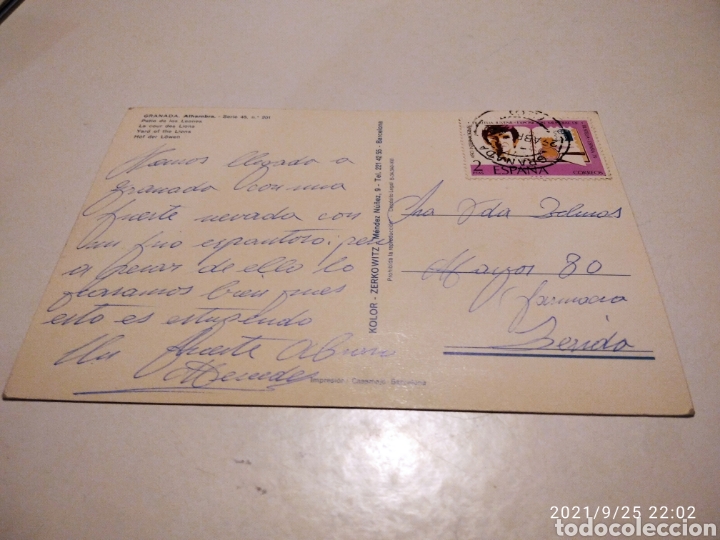 GRANADA. Alhambra. - Serie 45, n.º 201
Patio de los Leones
La cour des Lions
Yard of the Lions
Hof der Löwen
Hemos llegado a
Granada con una
fuerte nevada con
un frio espantoso; pero
a pesar de ello lo
pasamos bien pues
esto es estupendo
Un fuerte abrazo
Mercedes
KOLOR - ZERKOWITZ, Méndez Núñez, 9 - Tel. 221 42 55 - Barcelona
Prohibida la reproducción
Impresión: Casamajó - Barcelona
2
ESPAÑA
CORREOS
GRANADA
ABR
Sra Vda
Mayor 80
farmacia
Lerida
2021/9/25 22:02
todocoleccion